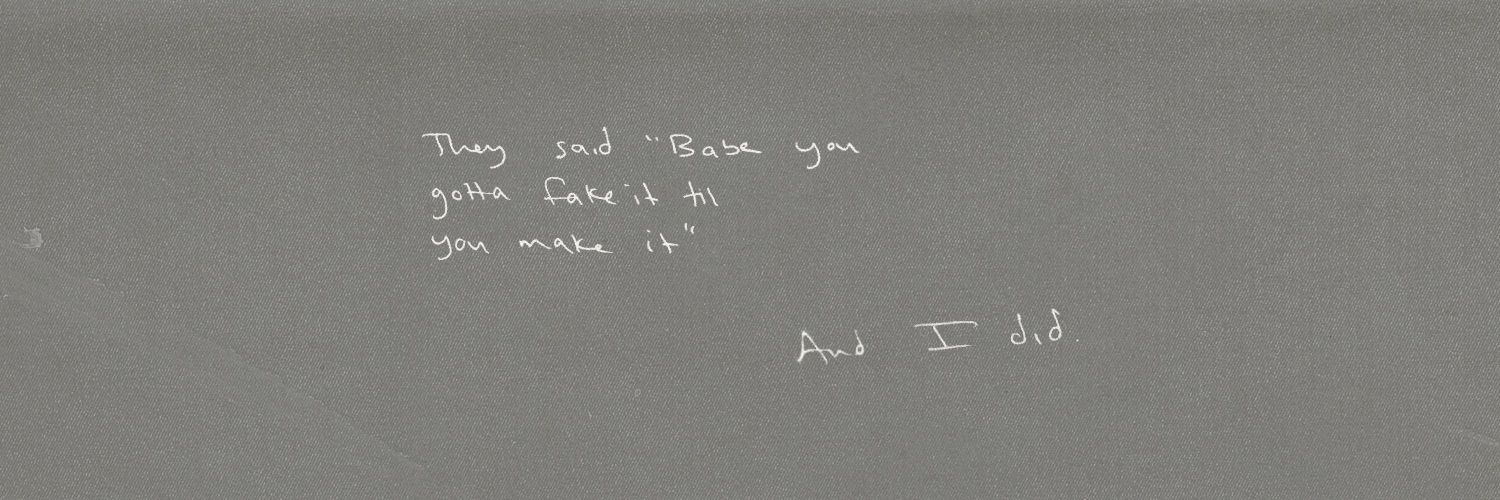 They said "Babe you
gotta fake it til
you make it"
And I did.